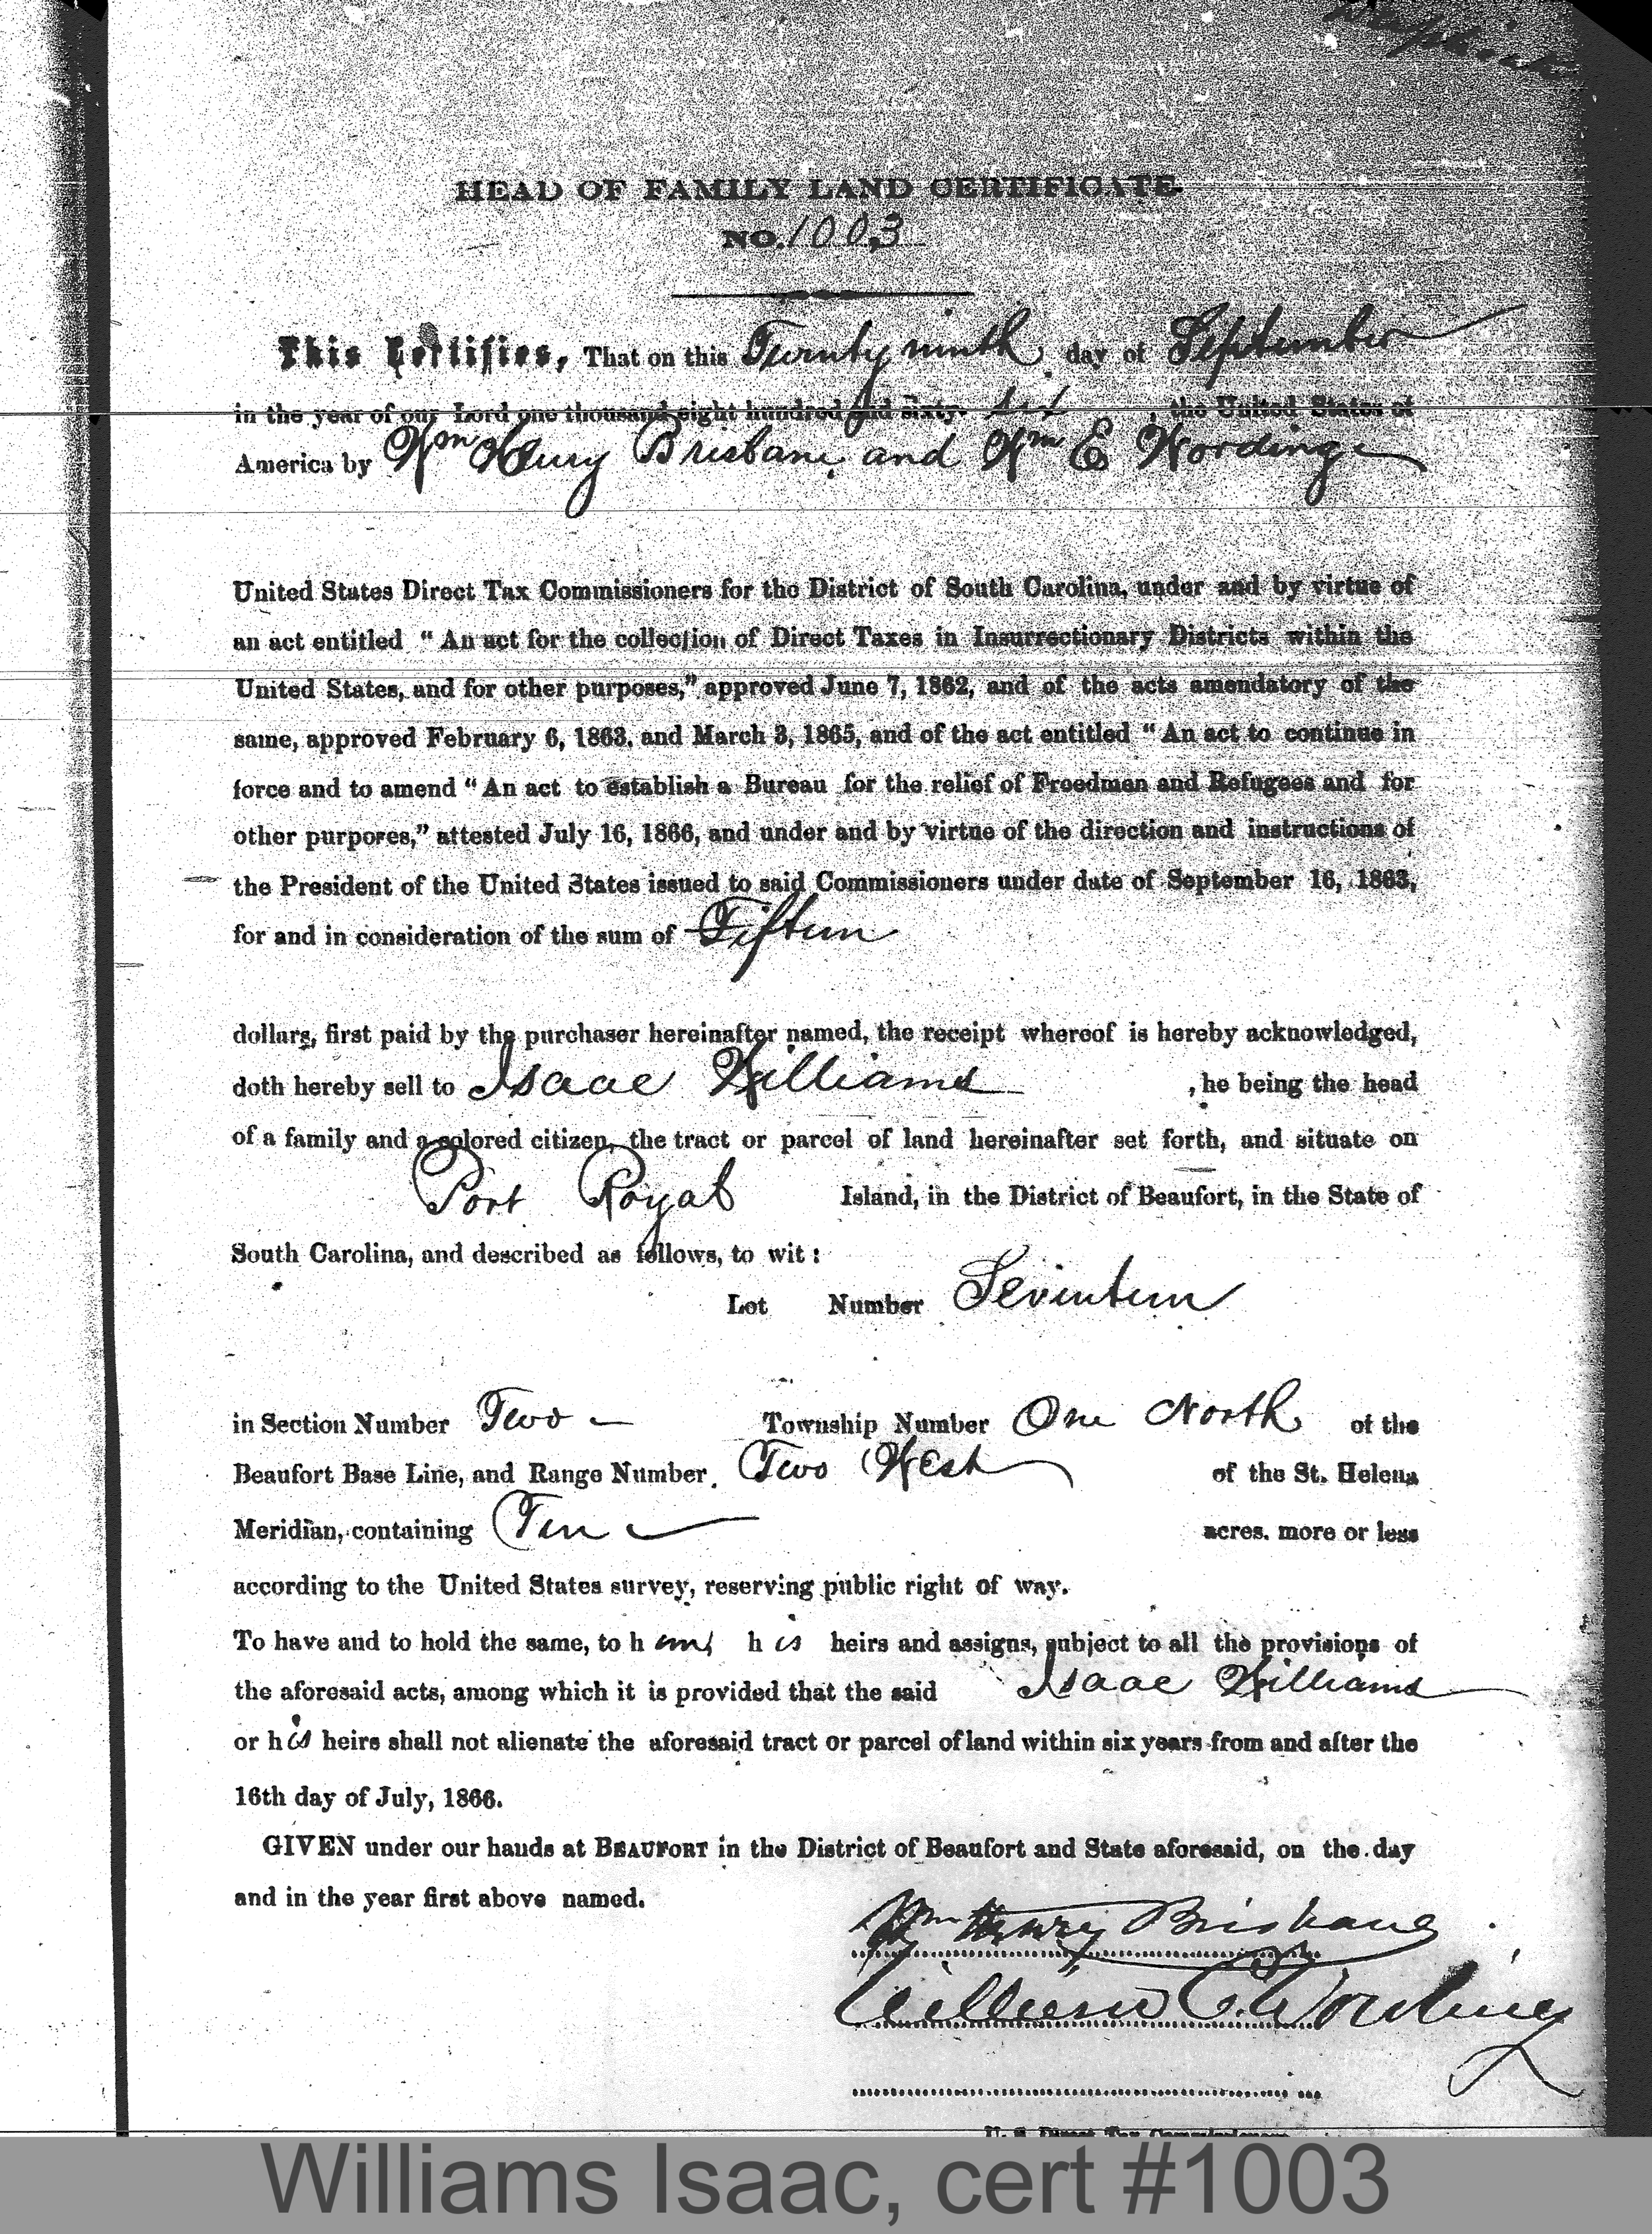 HEAD OF FAMILY LAND CERTIFICATE.
NO. 1003
This Certifies, That on this Twenty ninth day of September
in the year of our Lord one thousand eight hundred and sixty- six, the United States of
America by Wm Henry Brisbane and Wm E Wording
United States Direct Tax Commissioners for the District of South Carolina, under and by virtue of
an act entitled "An act for the collection of Direct Taxes in Insurrectionary Districts within the
United States, and for other purposes," approved June 7, 1862, and of the acts amendatory of the
same, approved February 6, 1863, and March 3, 1865, and of the act entitled "An act to continue in
force and to amend "An act to establish a Bureau for the relief of Freedmen and Refugees and for
other purpores," attested July 16, 1866, and under and by virtue of the direction and instructions of
the President of the United States issued to said Commissioners under date of September 16, 1863,
for and in consideration of the sum of Fifteen
dollars, first paid by the purchaser hereinafter named, the receipt whereof is hereby acknowledged,
doth hereby sell to Isaac Williams , he being the head
of a family and a colored citizen, the tract or parcel of land hereinafter set forth, and situate on
Port Royal Island, in the District of Beaufort, in the State of
South Carolina, and described as follows, to wit:
Lot Number Seventeen
in Section Number Two Township Number One North of the
Beaufort Base Line, and Range Number Two West of the St. Helena
Meridian, containing Ten acres. more or less
according to the United States survey, reserving public right of way.
To have and to hold the same, to him, his heirs and assigns, subject to all the provisions of
the aforesaid acts, among which it is provided that the said Isaac Williams
or his heirs shall not alienate the aforesaid tract or parcel of land within six years from and after the
16th day of July, 1866.
GIVEN under our hands at BEAUFORT in the District of Beaufort and State aforesaid, on the day
and in the year first above named.
Wm Henry Brisbane
William E. Wording
U. S. Direct Tax Commissioners
Williams Isaac, cert #1003